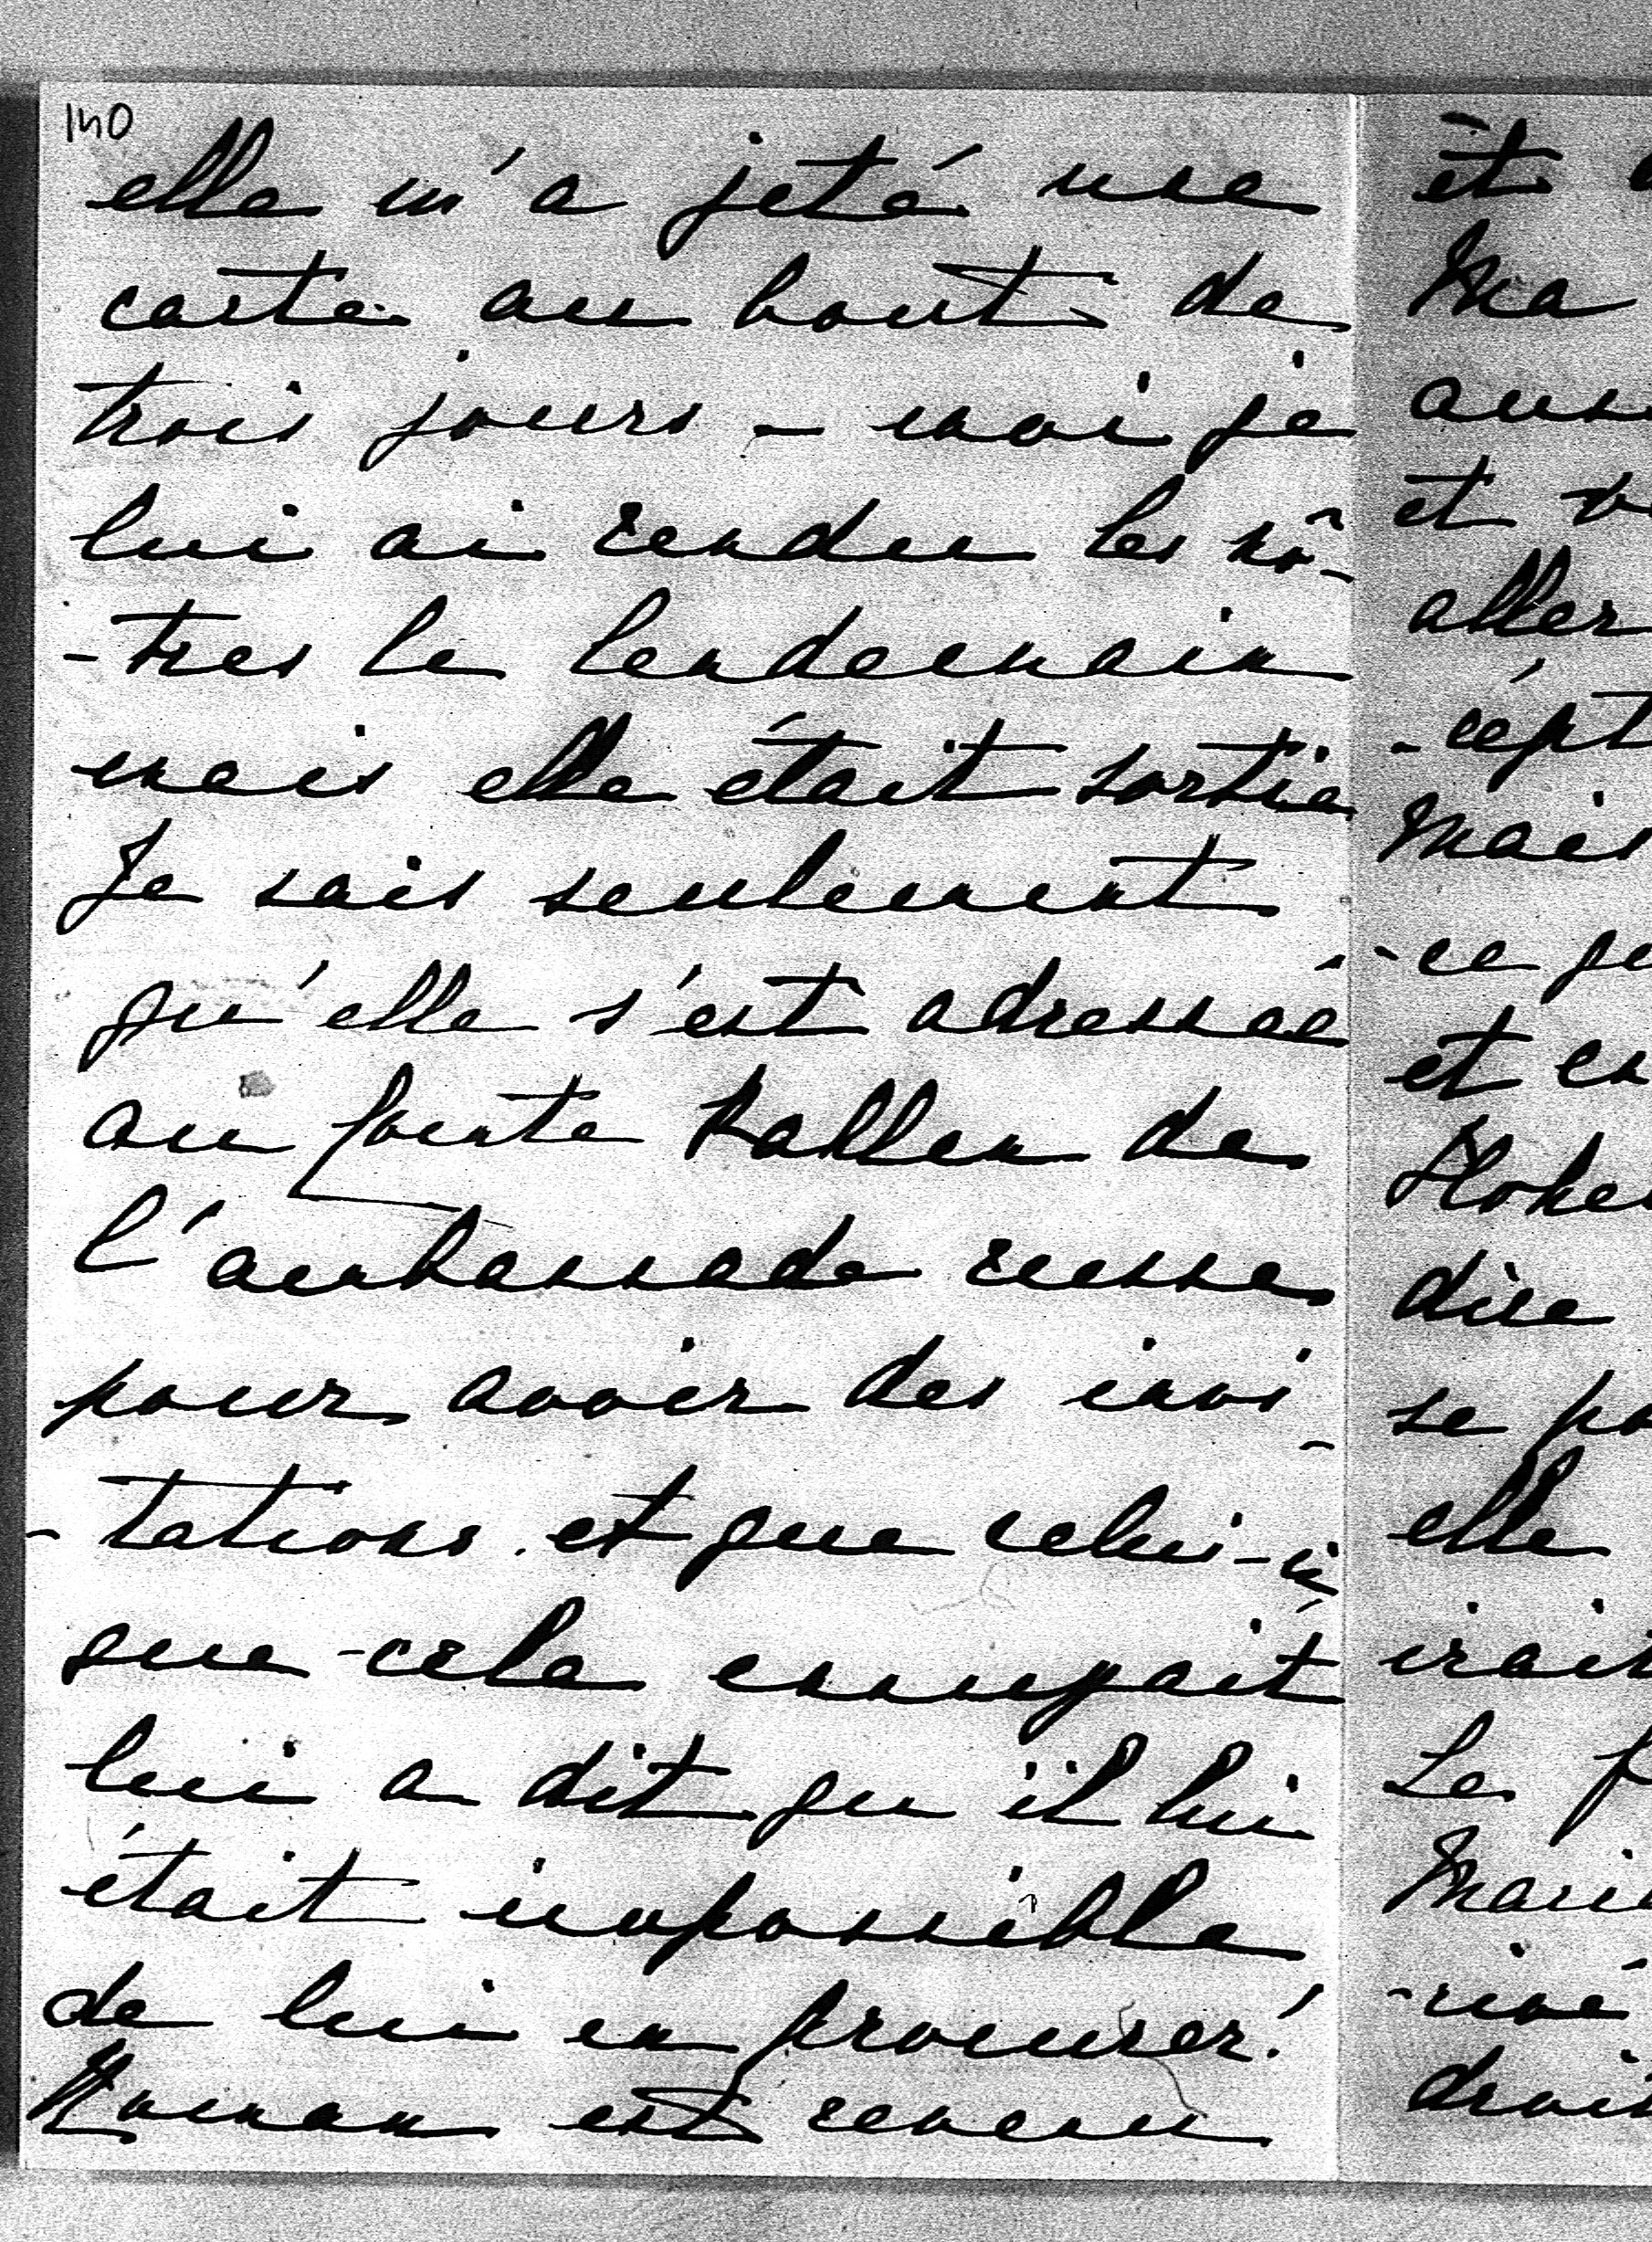 140
elle m'a jeté une
carte au bout de
trois jours - moi je
lui ai rendu les nô-
-tres le lendemain
mais elle était sortie
Je sais seulement
qu'elle s'est adressée
au de
l'ambassade russe
pour avoir des invi-
-tations et que celui-ci
que cela ennuyait
lui a dit qu'il lui
était impossible
de lui en procurer!
est revenu
et
Ma
aus
et
aller
-cept
Mais
-ce
et
dire
se
elle
irait
Le